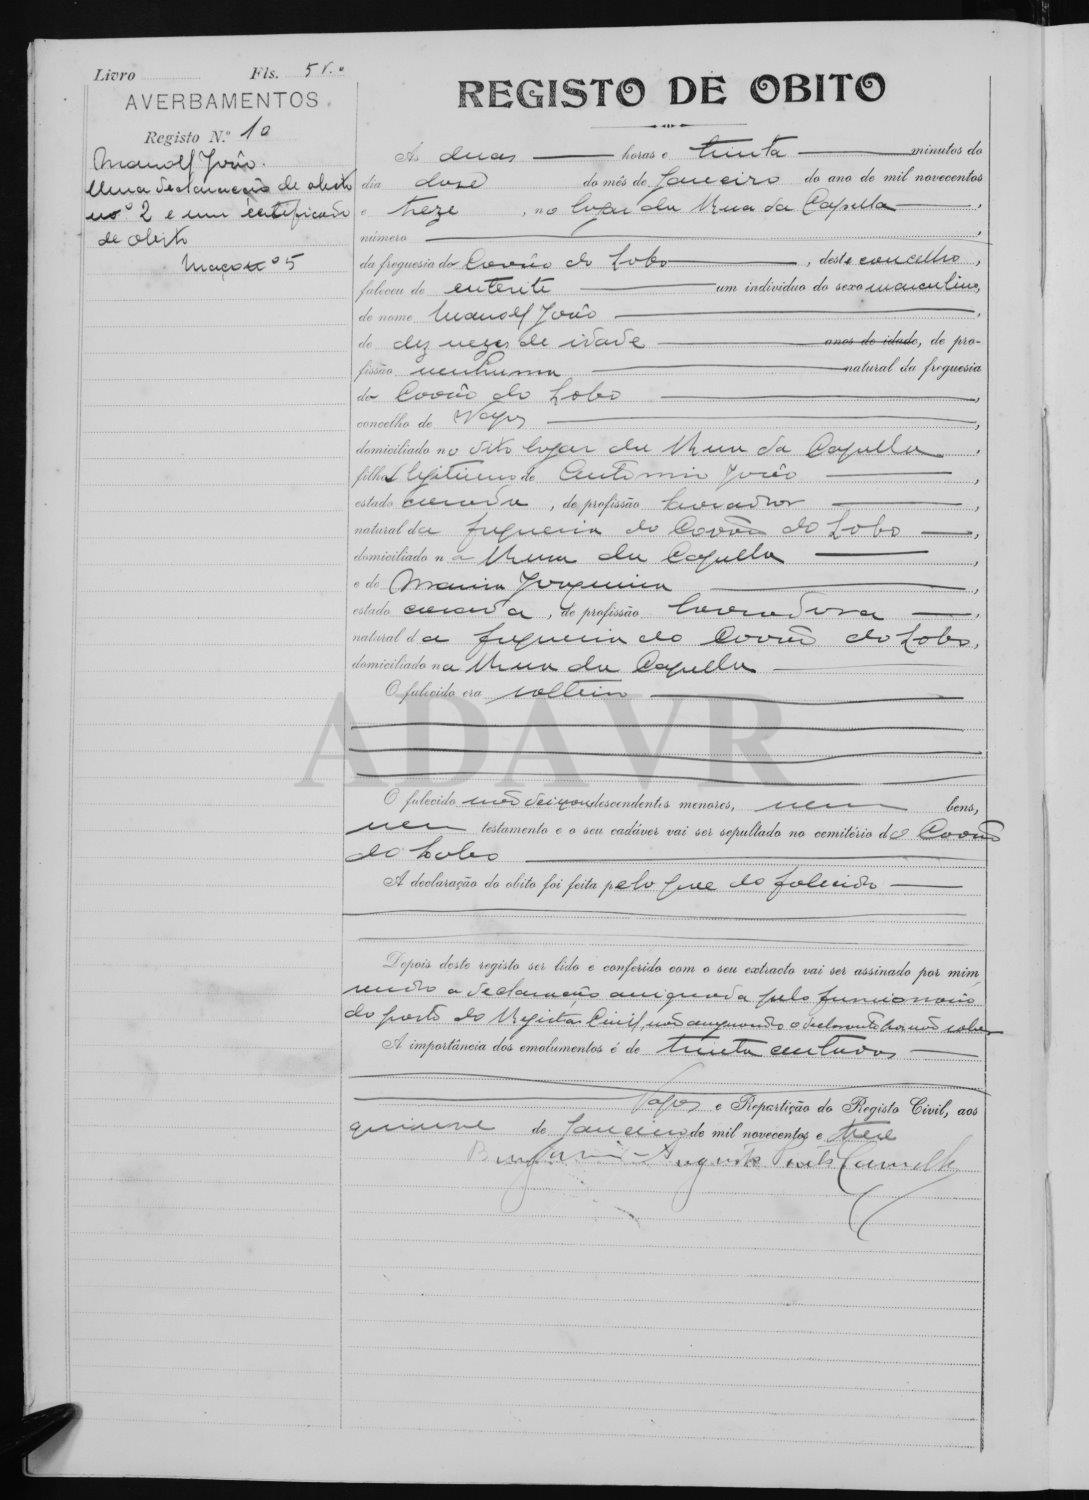 Livro Fls. 5 v.o
AVERBAMENTOS
Registo N.º 10
Manoel João.
Uma declaração de obito
nº 2 e um certificado
de obito
Maço nº 5
REGISTO DE OBITO
Às duas horas e trinta minutos do
dia doze do mês de Janeiro do ano de mil novecentos
e treze, no lugar da Rua da Capella,
número
da freguesia do Covão do Lobo, deste concelho,
faleceu de enterite um individuo do sexo masculino,
de nome Manoel João
de dez mezes de idade anos de idade, de pro-
fissão nenhuma natural da freguesia
do Covão do Lobo,
concelho de Vagos,
domiciliado no dito lugar da Rua da Capella,
filho legitimo de Antonio João,
estado casado, de profissão lavrador,
natural da freguesia do Covão do Lobo,
domiciliado na Rua da Capella,
e de Maria Joaquina,
estado casada, de profissão lavradora,
natural da freguesia do Covão do Lobo,
domiciliado na Rua da Capella
O falecido era solteiro
ADAVR
O falecido não deixou descendentes menores, nem bens,
nem testamento e o seu cadáver vai ser sepultado no cemitério do Covão
do Lobo
A declaração do obito foi feita pelo pae do falecido
Depois deste registo ser lido e conferido com o seu extracto vai ser assinado por mim
sendo a declaração assignada pelo funcionario
do posto do Registo Civil não assignando o declarante por não saber
A importância dos emolumentos é de trinta centavos
Vagos e Repartição do Registo Civil, aos
quinze de Janeiro de mil novecentos e treze
Augusto